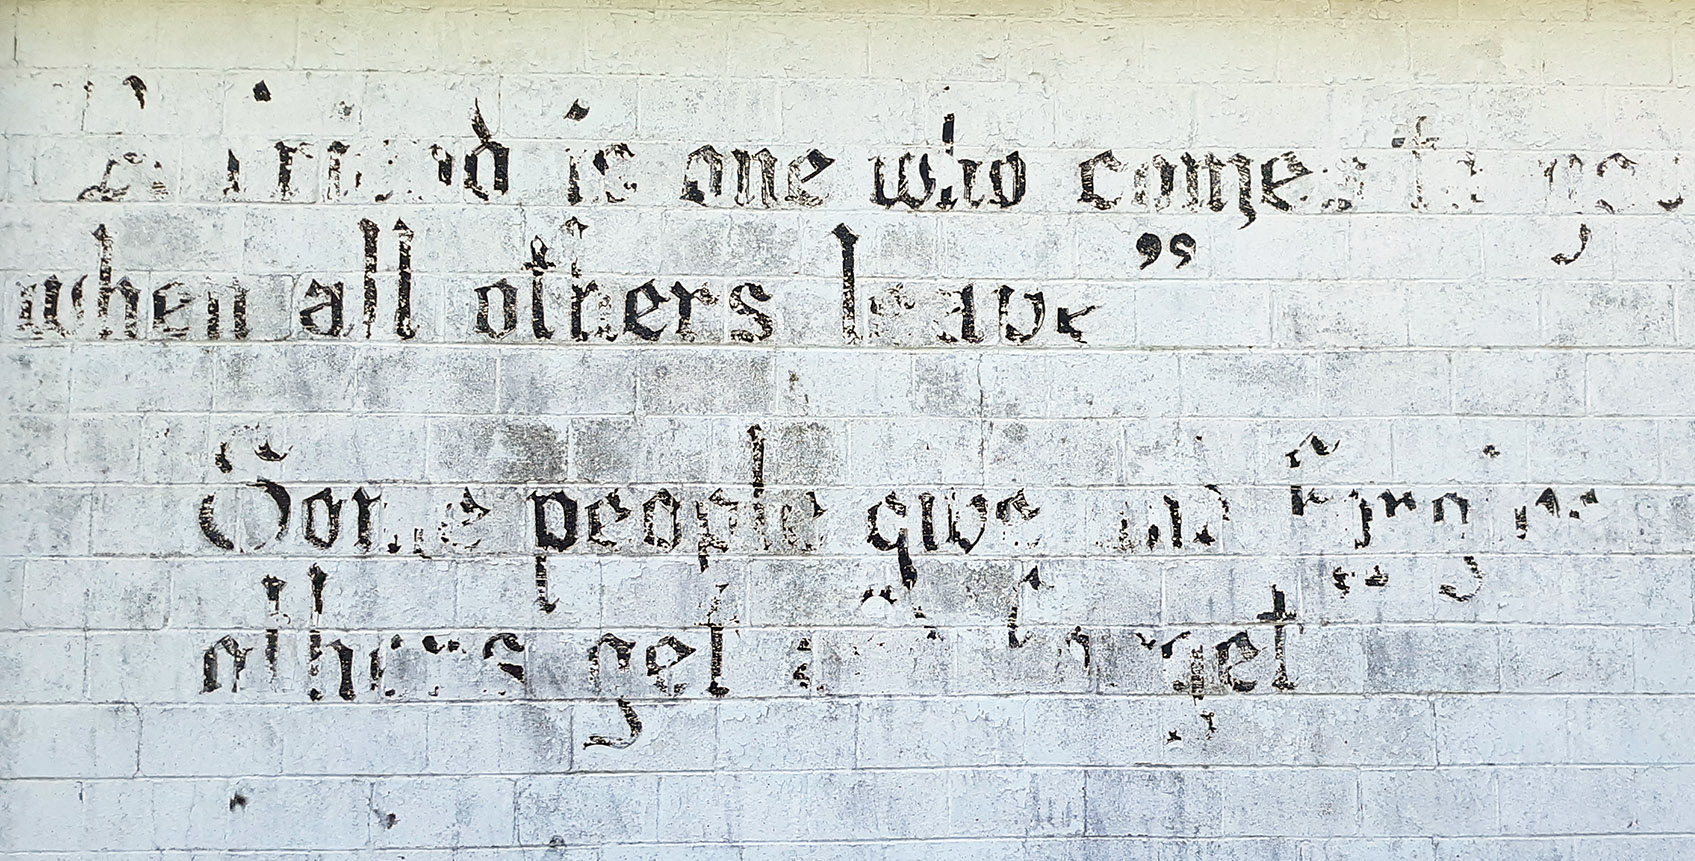 A friend is one who comes to you
when all others leave”
Some people give and forgive
others get and forget